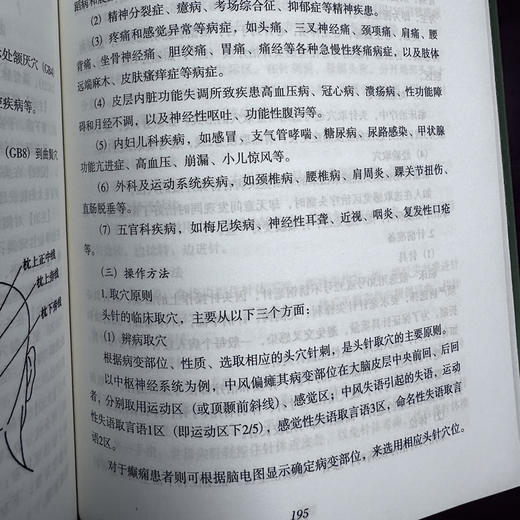 处颔厌穴（GB4
疾病等。
（GB8）到曲鬓穴
枕上正中线
枕上旁线
枕下旁线
（2）精神分裂症、癔病、考场综合征、抑郁症等精神疾患。
（3）疼痛和感觉异常等病症，如头痛、三叉神经痛、颈项痛、肩痛、腰
背痛、坐骨神经痛、胆绞痛、胃痛、痛经等各种急慢性疼痛病症，以及肢体
远端麻木、皮肤瘙痒症等病症。
（4）皮层内脏功能失调所致疾患高血压病、冠心病、溃疡病、性功能障
碍和月经不调，以及神经性呕吐、功能性腹泻等。
（5）内妇儿科疾病，如感冒、支气管哮喘、糖尿病、尿路感染、甲状腺
功能亢进症、高血压、崩漏、小儿惊风等。
（6）外科及运动系统疾病，如颈椎病、腰椎病、肩周炎、踝关节扭伤、
直肠脱垂等。
（7）五官科疾病，如梅尼埃病、神经性耳聋、近视、咽炎、复发性口疮
等。
（三）操作方法
1.取穴原则
头针的临床取穴，主要从以下三个方面：
（1）辨病取穴
根据病变部位、性质、选取相应的头穴针刺，是头针取穴的主要原则。
以中枢神经系统为例，中风偏瘫其病变部位在大脑皮层中央前回、后回
者，分别取用运动区（或顶颞前斜线）、感觉区；中风失语引起的失语，运动
性失语取言语1区（即运动区下2/5），感觉性失语取言语3区，命名性失语取言
语2区。
对于癫痫患者则可根据脑电图显示确定病变部位，来选用相应头针穴位。
195